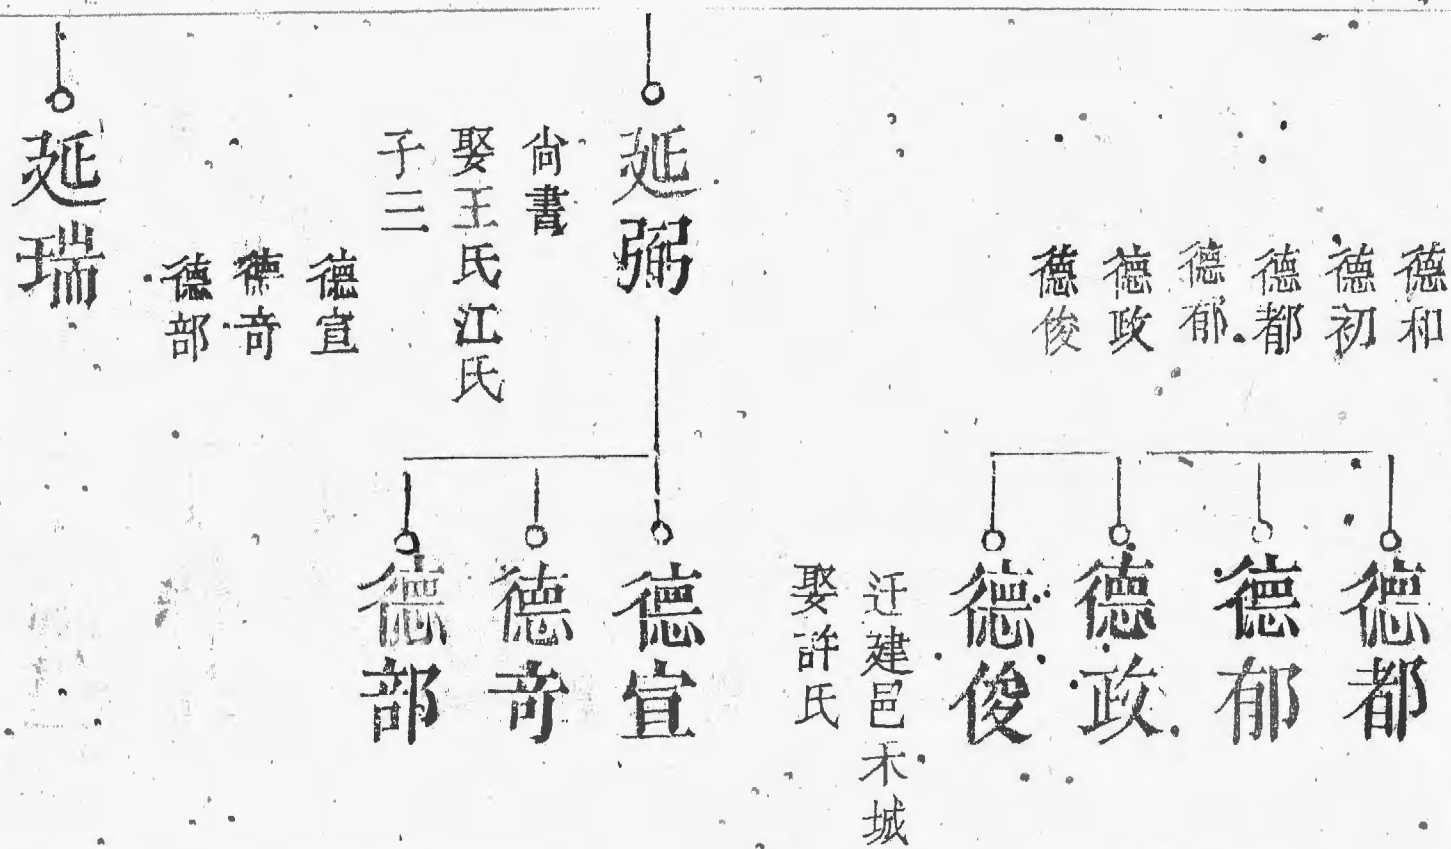 德和
德初
德都
德郁
德政
德俊
德都
德郁
德政
德俊
迁建邑禾城
娶許氏
延弼
尚書
娶王氏江氏
子三
德宣
德奇
德部
德宣
德奇
德部
延瑞